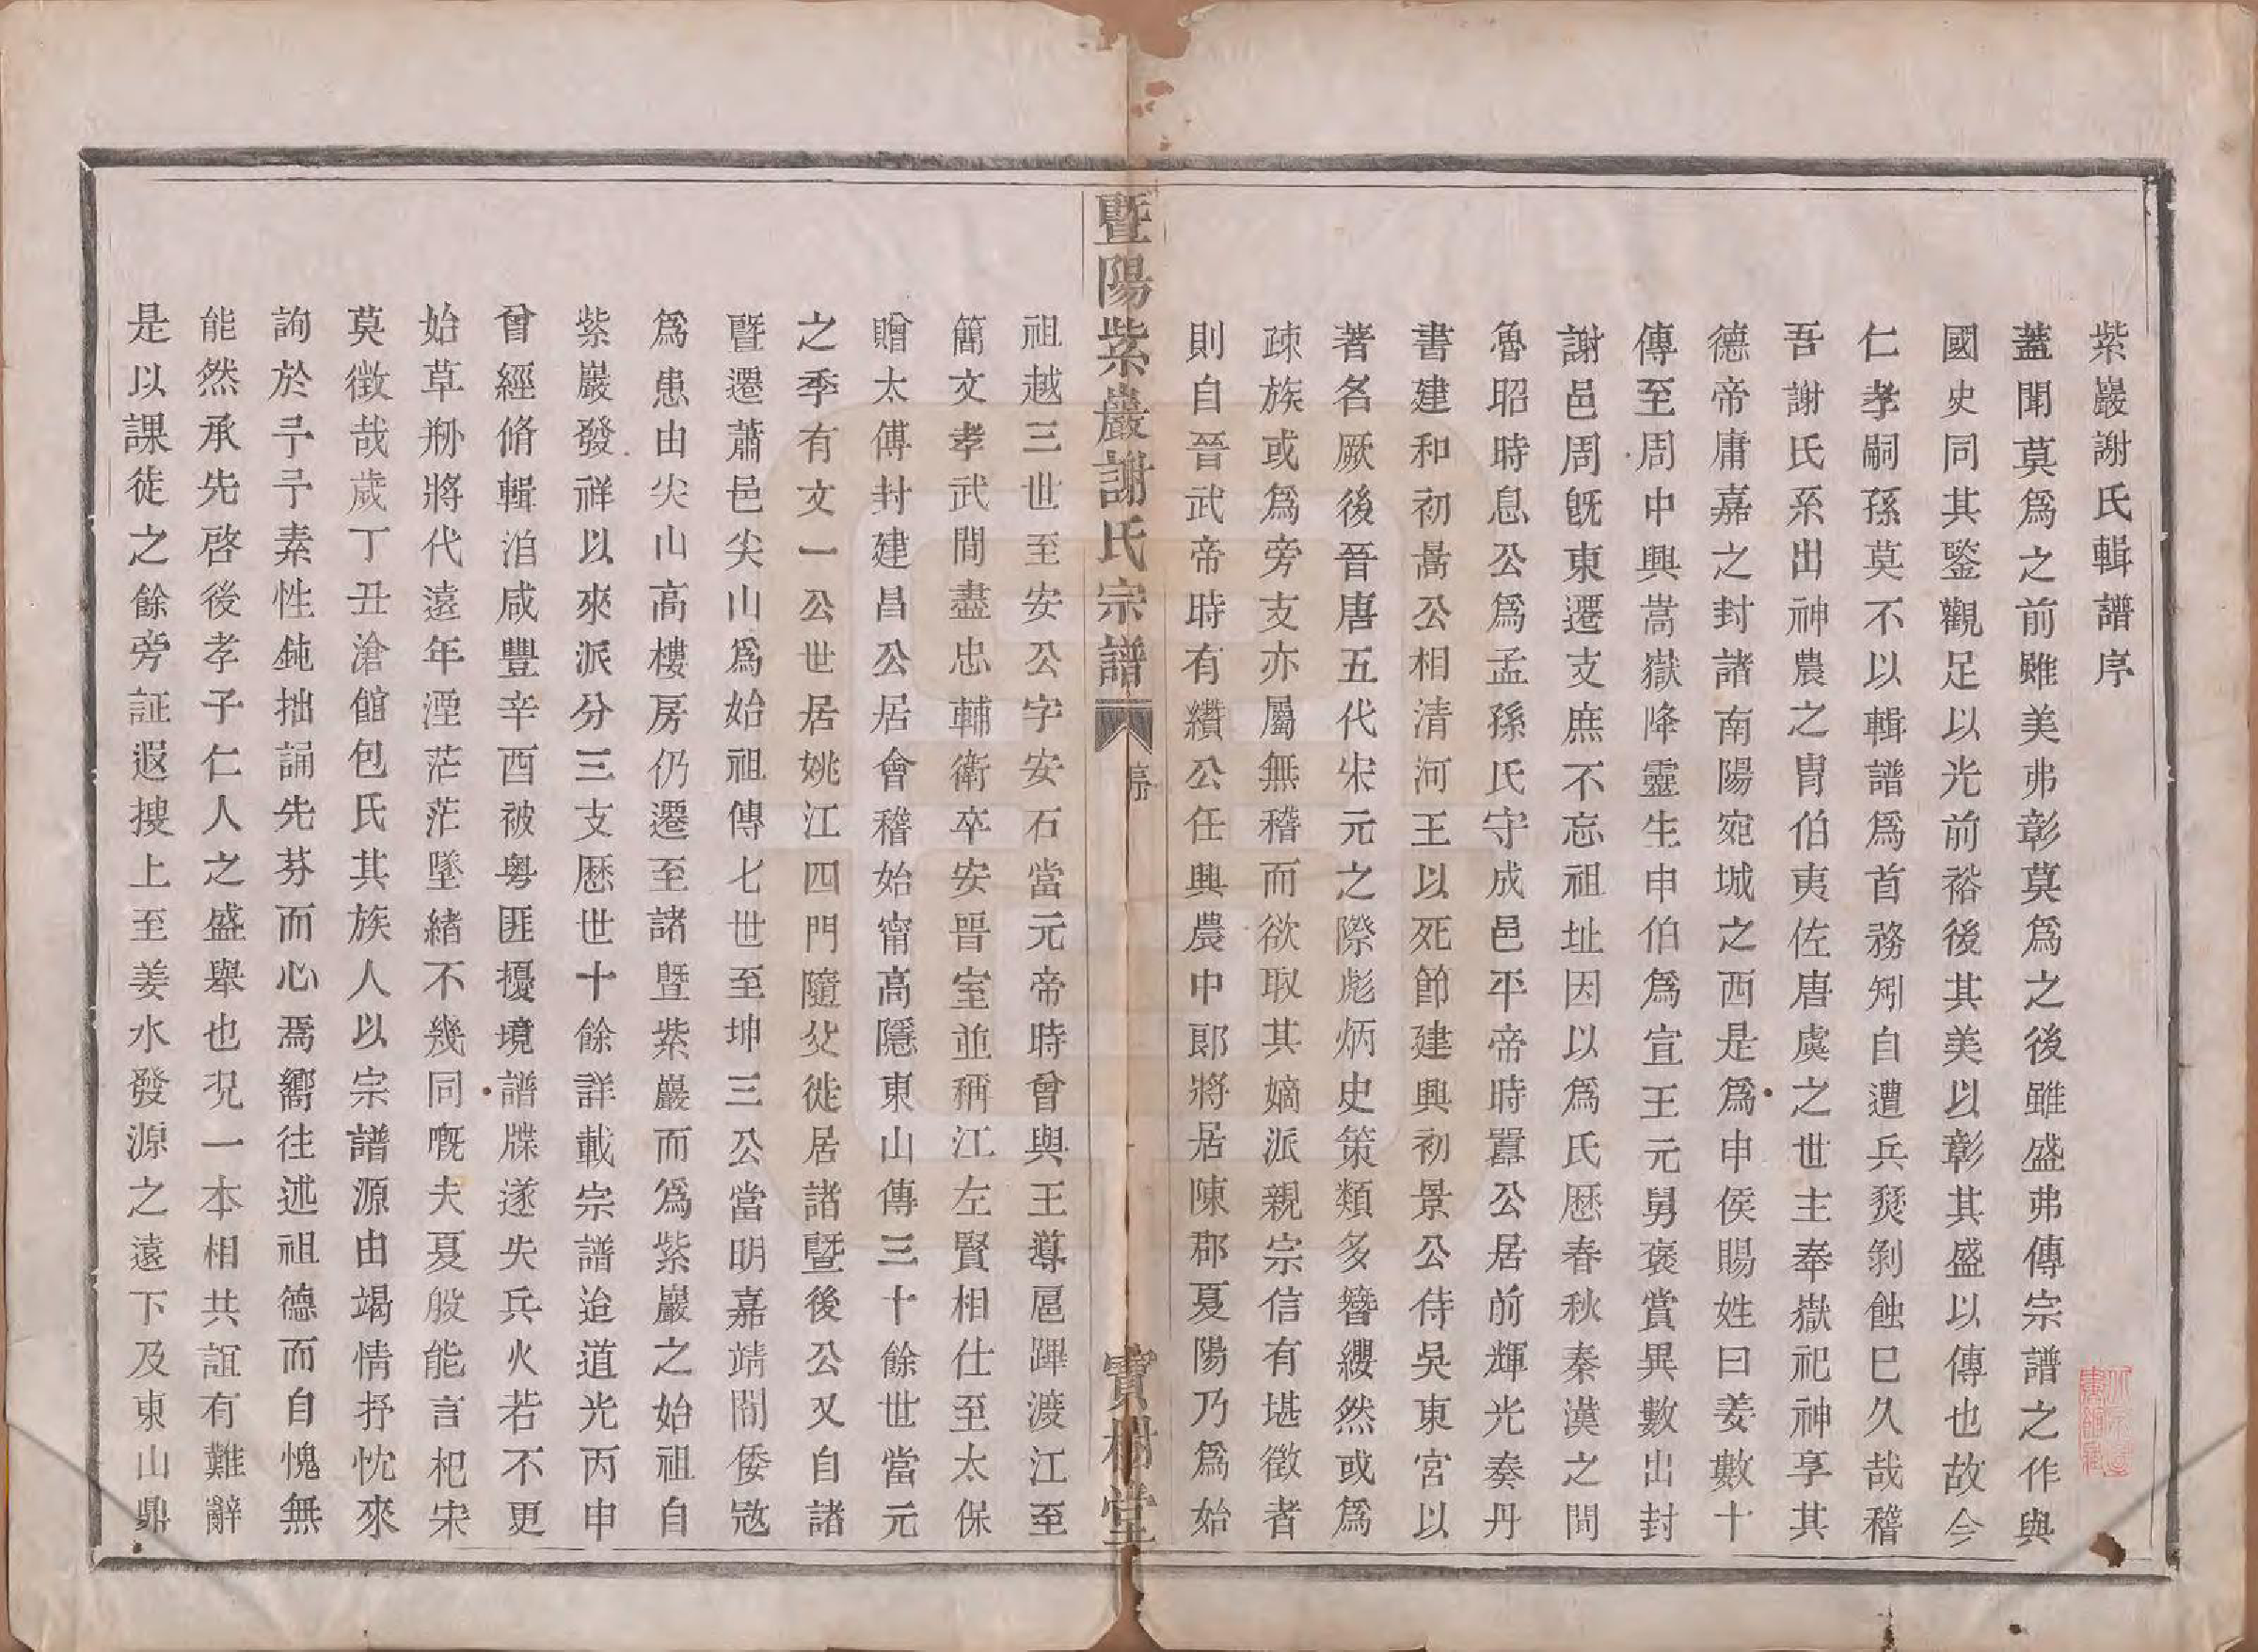 紫巖謝氏輯譜序
蓋聞莫爲之前雖美弗彰莫爲之後雖盛弗傳宗譜之作與
國史同其鑒觀足以光前裕後其美以彰其盛以傳也故今
仁孝嗣孫莫不以輯譜爲首務矧自遭兵燹剝蝕巳久哉稽
吾謝氏系出神農之胄伯夷佐唐虞之世主奉嶽祀神享其
德帝庸嘉之封諸南陽宛城之西是爲申侯賜姓曰姜數十
傳至周中興嵩嶽降靈生申伯爲宣王元舅褒賞異數出封
謝邑周旣東遷支庶不忘祖址因以爲氏歷春秋秦漢之間
魯昭時息公爲孟孫氏守成邑平帝時囂公居前輝光奏丹
書建和初暠公相清河王以死節建興初景公侍吳東宮以
著名厥後晉唐五代宋元之際彪炳史策類多簪纓然或爲
疎族或爲旁支亦屬無稽而欲取其嫡派親宗信有堪徵者
則自晉武帝時有纘公任興農中郎將居陳郡夏陽乃爲始
暨陽紫巖謝氏宗譜
序
寶樹堂
祖越三世至安公字安石當元帝時曾與王導扈蹕渡江至
簡文孝武間盡忠輔衛卒安晉室並稱江左賢相仕至太保
贈太傅封建昌公居會稽始甯高隱東山傳三十餘世當元
之季有文一公世居姚江四門隨父徙居諸暨後公又自諸
暨遷蕭邑尖山爲始祖傳七世至坤三公當明嘉靖間倭冦
爲患由尖山高樓房仍遷至諸暨紫巖而爲紫巖之始祖自
紫巖發祥以來派分三支歷世十餘詳載宗譜迨道光丙申
曾經脩輯洎咸豐辛酉被粵匪擾境譜牒遂失兵火若不更
始草刱將代遠年湮茫茫墜緒不幾同嘅夫夏殷能言杞宋
莫徵哉歲丁丑滄館包氏其族人以宗譜源由竭情抒忱來
詢於予予素性鈍拙誦先芬而心焉嚮往述祖德而自愧無
能然承先啓後孝子仁人之盛舉也况一本相共誼有難辭
是以課徒之餘旁証遐搜上至姜水發源之遠下及東山鼎